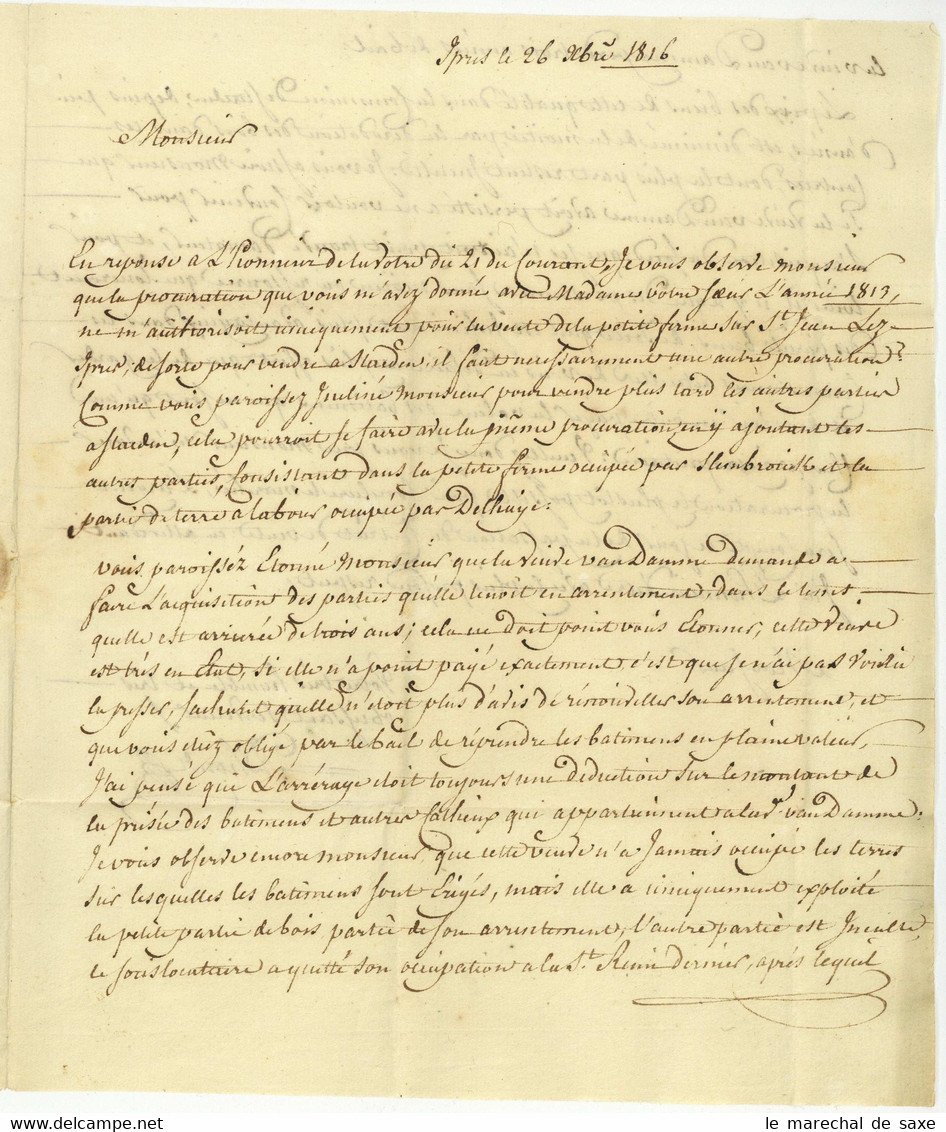 Ipres le 26 Xbre 1816
Monsieur
En reponse a L'honneur de la votre du 21 du Courant, Je vous observe monsieur
que la procuration que vous m'avez donné avec Madame votre sœur L'année 1813,
ne m'authorisoit uniquement pour la vente de la petite ferme sur St. Jean Lez-
Ipres, de sorte pour vendre a Staden, il faut necessairement une autre procuration
Comme vous paroissez Incliné Monsieur pour vendre plus tard les autres parties
a Staden, cela pourroit se faire avec la même procuration, en y ajoutant les-
autres parties, Consistant dans la petite ferme occupée par et la
partie de terre a labour occupée par Delhaye.
vous paroissez Etonné Monsieur que la veuve van Damme demande a-
faire L'acquisition des parties qu'elle tenoit en arrentement, dans le tems-
quelle est arrierée de trois ans; cela ne doit point vous Etonner, cette veuve
est très en Etat, si elle n'a point payé exactement c'est que je n'ai pas voulu
la presser, sachant quelle n'étoit plus d'avis de rénouveller son arrentement, et
que vous etiez obligé par le bail de réprendre les batimens en plaine valeur,
J'ai pensé que L'arrérage etoit toujours une déduction sur le montant de
la prisée des batimens et autres Catheux qui appartiennent a la ve. van Damme.
Je vous observe encore monsieur, que cette veuve n'a Jamais occupée les terres
sur lesquelles les batimens sont Erigés, mais elle a uniquement exploité
la petite partie de bois partie de son arrentement, l'autre partie est Inculte,
le souslocataire a quitté son occupation a la St. Remi dernier, après lequel
le marechal de saxe